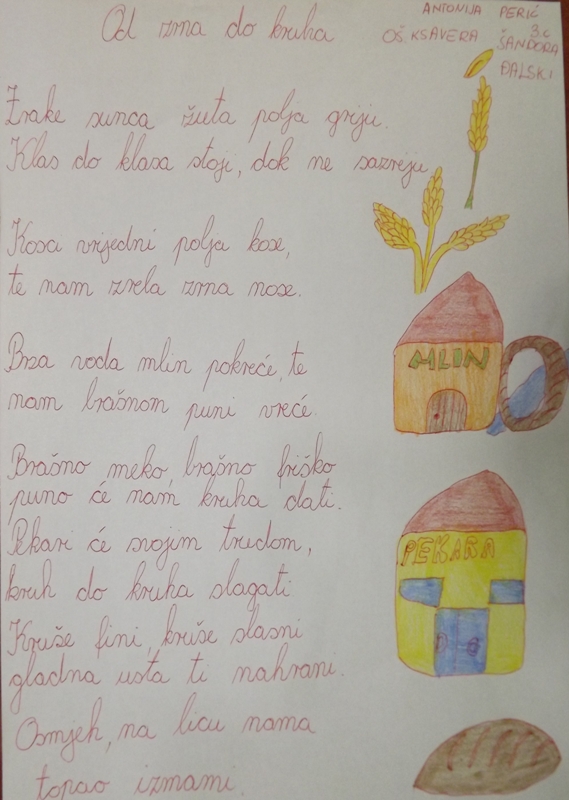 Od zrna do kruha
ANTONIJA PERIĆ
3.c
OŠ. KSAVERA ŠANDORA
ĐALSKI
Zrake sunca žuta polja griju.
Klas do klasa stoji, dok ne sazreju.
Kosa vrijedni polja kose,
te nam zrela zrna nose.
Brza voda mlin pokreće, te
nam brašnom puni vreće.
Brašno meko, brašno friško
puno će nam kruha dati.
Pekari će svojim trudom,
kruh do kruha slagati
Kruše fini, kruše slasni
gladna usta ti nahrani.
Osmjeh, na licu nama
topao izmami.
MLIN
PEKARA